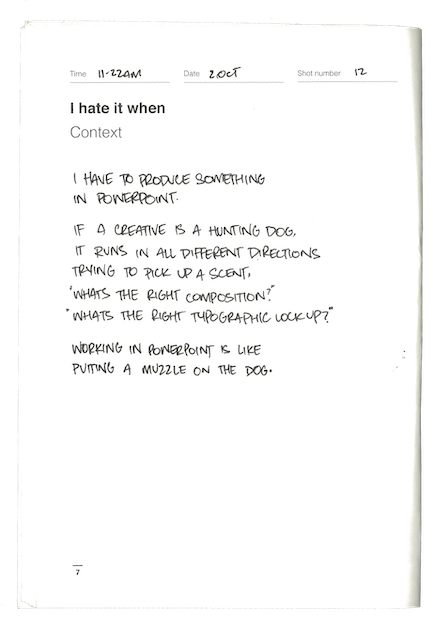 Time 11-22AM Date 2 OCT Shot number 12
I hate it when
Context
I HAVE TO PRODUCE SOMETHING
IN POWERPOINT.
IF A CREATIVE IS A HUNTING DOG,
IT RUNS IN ALL DIFFERENT DIRECTIONS
TRYING TO PICK UP A SCENT,
"WHATS THE RIGHT COMPOSITION?"
"WHATS THE RIGHT TYPOGRAPHIC LOCKUP?"
WORKING IN POWERPOINT IS LIKE
PUTTING A MUZZLE ON THE DOG.
7